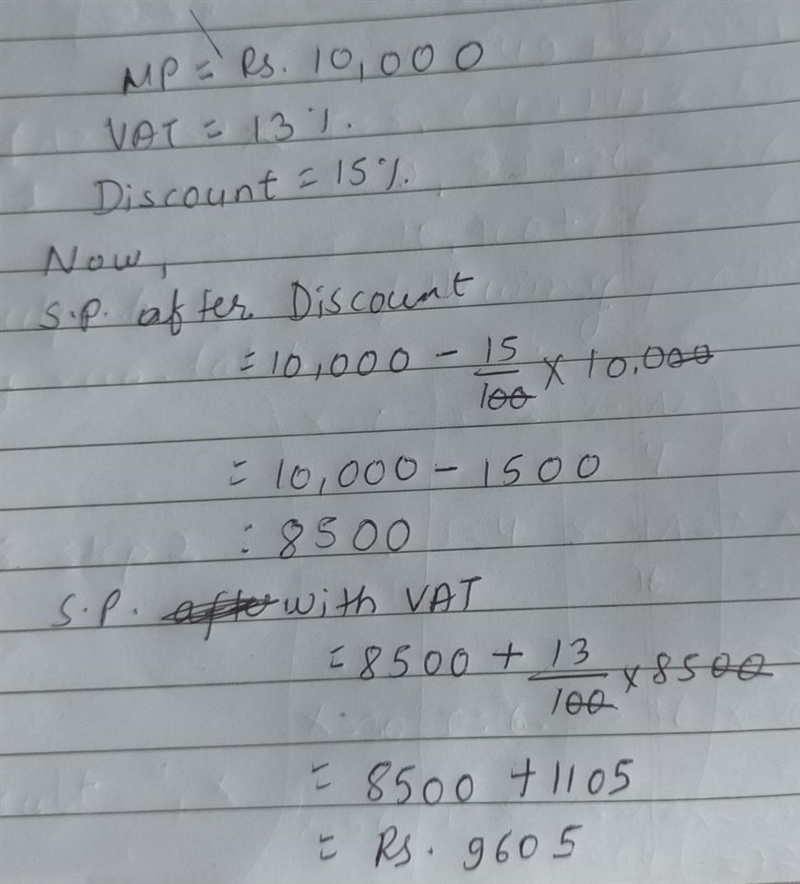 MP = Rs. 10,000
VAT = 13%.
Discount = 15%.
Now,
S.P. after Discount
= 10,000 - 15/100 × 10,000
= 10,000 - 1500
= 8500
S.P. with VAT
= 8500 + 13/100 × 8500
= 8500 + 1105
= Rs. 9605